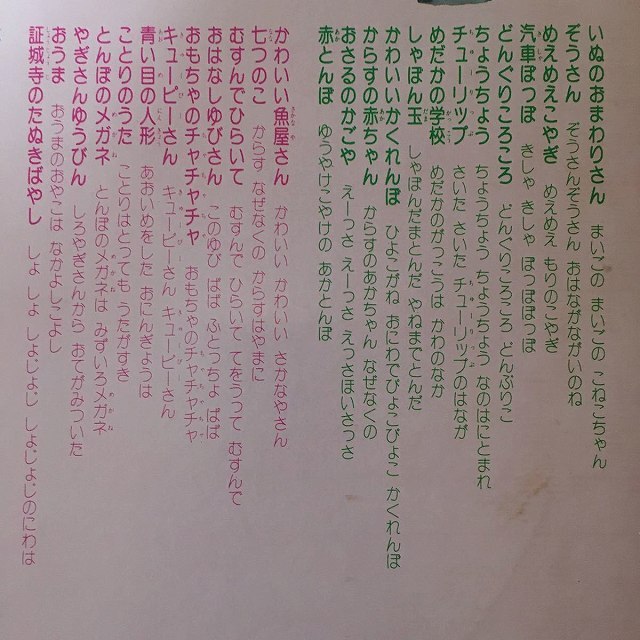 いぬのおまわりさん　まいごの まいごの こねこちゃん
ぞうさん　ぞうさんぞうさん おはながながいのね
めえめえこやぎ　めえめえ もりのこやぎ
汽車ぽっぽ　きしゃ きしゃ ぽっぽぽっぽ
どんぐりころころ　どんぐりころころ どんぶりこ
ちょうちょう　ちょうちょう ちょうちょう なのはにとまれ
チューリップ　さいた さいた チューリップのはなが
めだかの学校　めだかのがっこうは かわのなか
しゃぼん玉　しゃぼんだまとんだ やねまでとんだ
かわいいかくれんぼ　ひよこがね おにわでぴょこぴょこ かくれんぼ
からすの赤ちゃん　からすのあかちゃん なぜなくの
おさるのかごや　えーっさ えーっさ えっさほいさっさ
赤とんぼ　ゆうやけこやけの あかとんぼ
かわいい魚屋さん　かわいい かわいい さかなやさん
七つのこ　からす なぜなくの からすはやまに
むすんでひらいて　むすんで ひらいて てをうって むすんで
おはなしゆびさん　このゆび ぱぱ ふとっちょ ぱぱ
おもちゃのチャチャチャ　おもちゃのチャチャチャ
キューピーさん　キューピーさん キューピーさん
青い目の人形　あおいめをした おにんぎょうは
ことりのうた　ことりはとっても うたがすき
とんぼのメガネ　とんぼのメガネは みずいろメガネ
やぎさんゆうびん　しろやぎさんから おてがみついた
おうま　おうまのおやこは なかよしこよし
証城寺のたぬきばやし　しょ しょ しょじょじ しょじょじのにわは